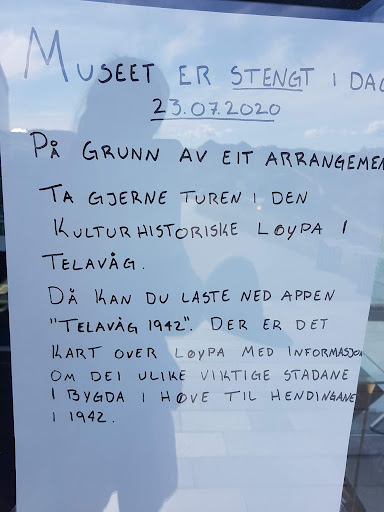 MUSEET ER STENGT I DAG
23.07.2020
PÅ GRUNN AV EIT ARRANGEMEN
TA GJERNE TUREN I DEN
KULTURHISTORISKE LØYPA I
TELAVÅG.
DÅ KAN DU LASTE NED APPEN
"TELAVÅG 1942". DER ER DET
KART OVER LØYPA MED INFORMASJON
OM DEI ULIKE VIKTIGE STADANE
I BYGDA I HØVE TIL HENDINGANE
I 1942.